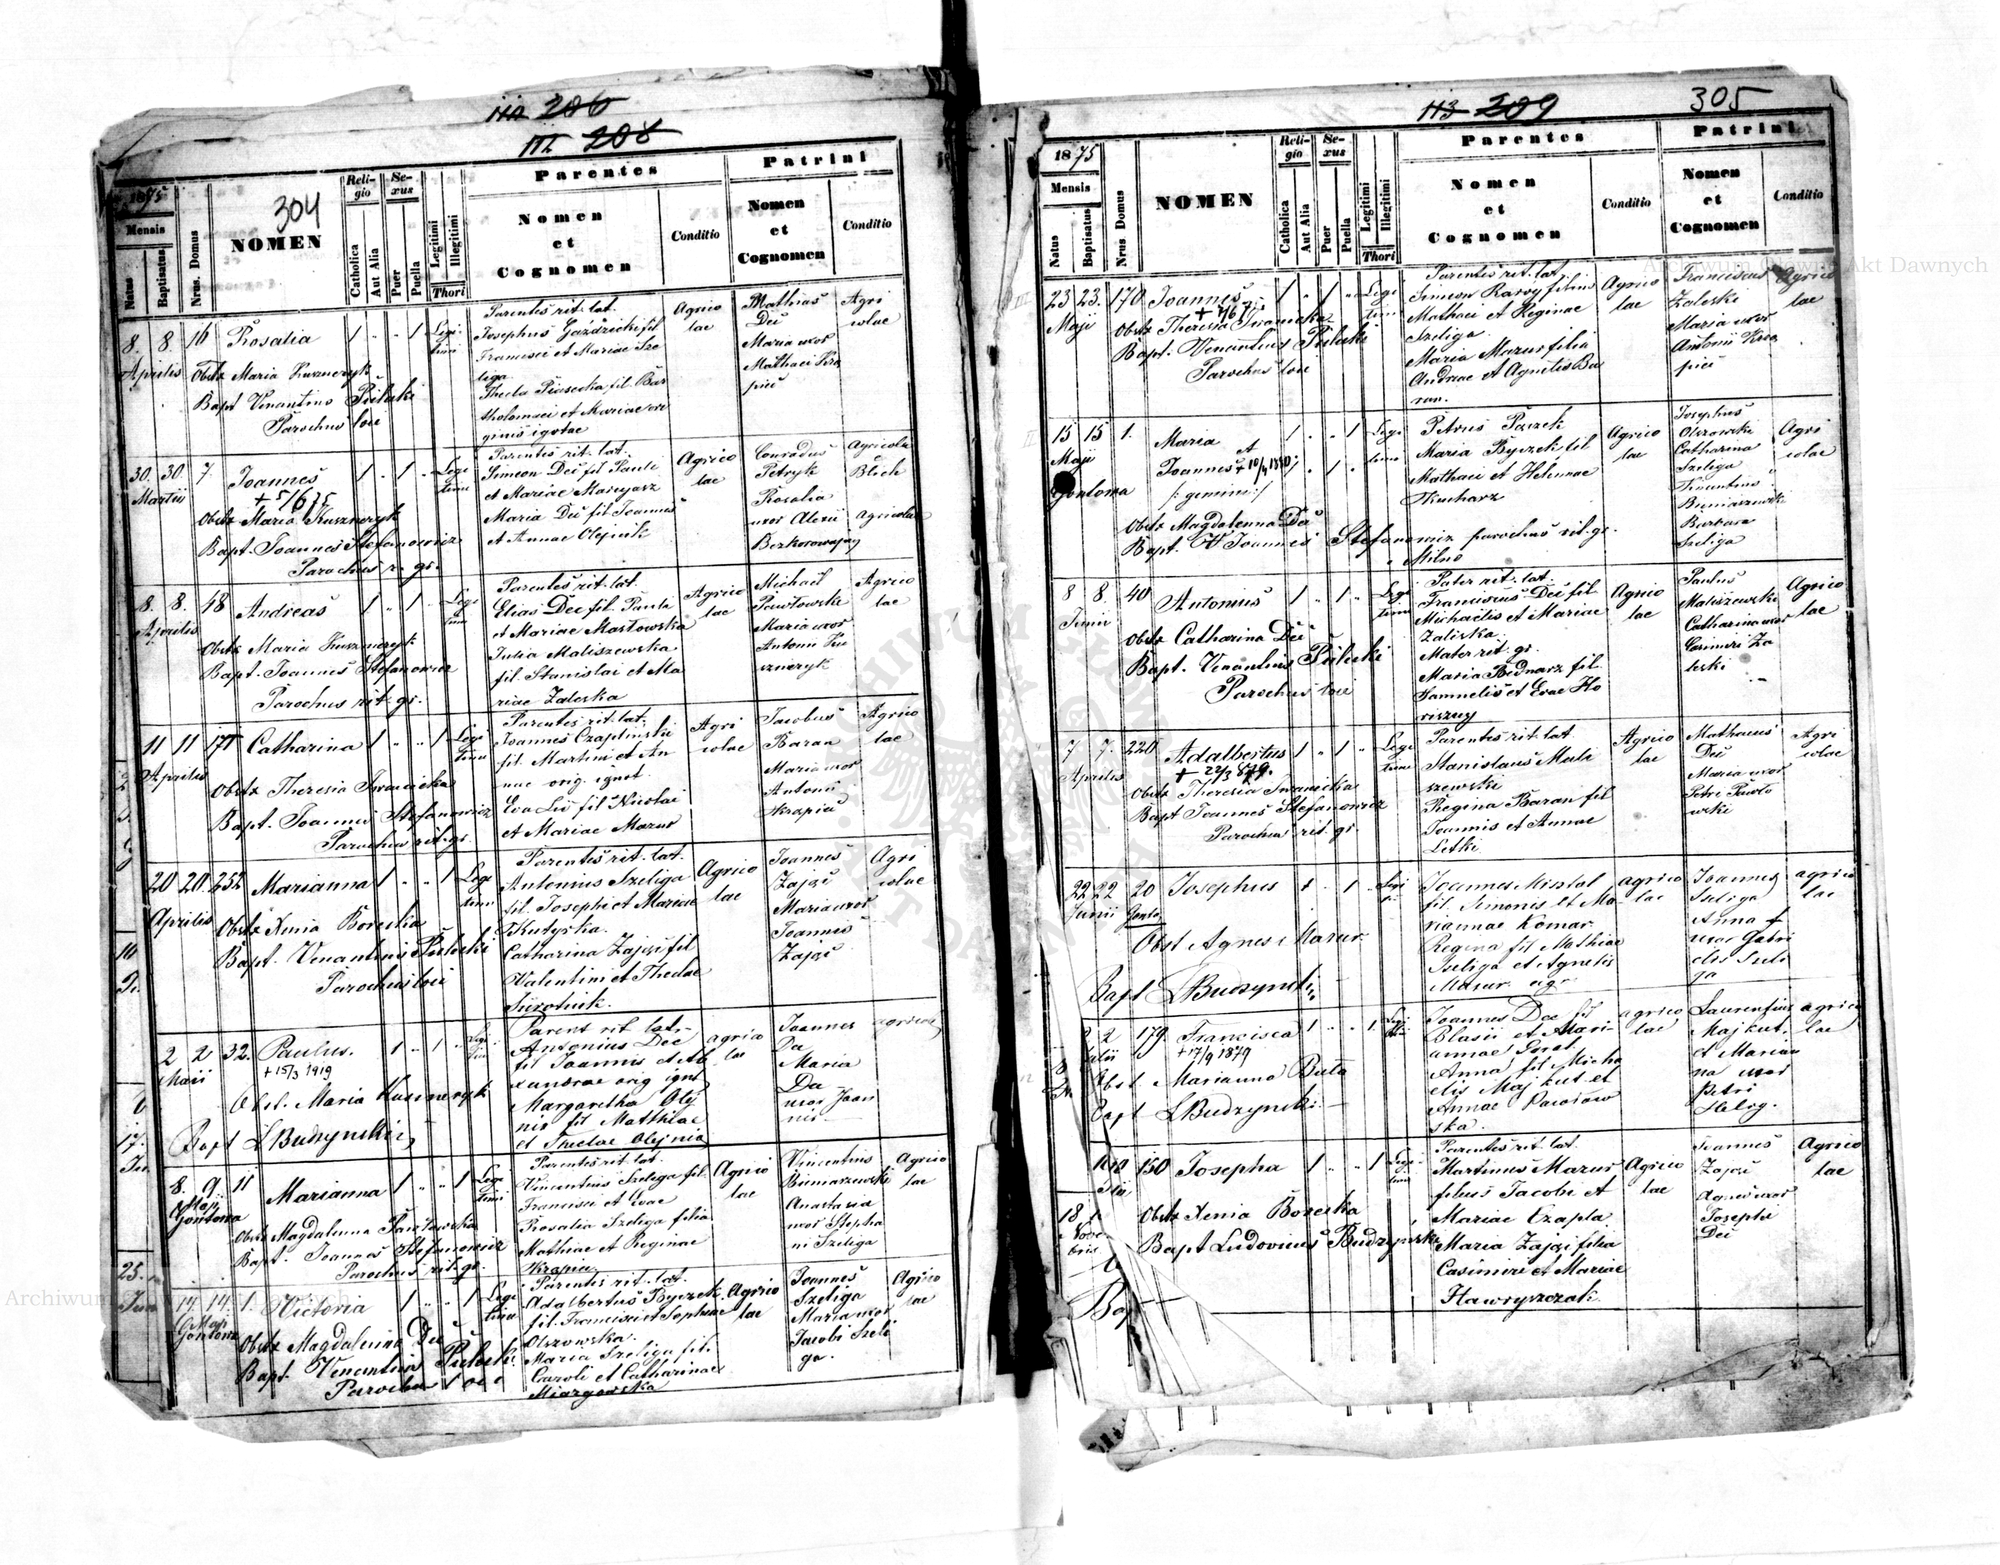 112 206
111. 208
1875
Mensis
Natus
Baptisatus
Nrus. Domus
304
NOMEN
Reli-
gio
Catholica
Aut Alia
Se-
xus
Puer
Puella
Legitimi
Illegitimi
Thori
Parentes
Nomen
et
Cognomen
Conditio
Patrini
Nomen
et
Cognomen
Conditio
8. 8 16 Rosalia 1 " " 1 Legi
timi
Aprilis
Obstx Maria Kuszneryk
Bapt Venantius Pilecki
Parochus loci
Parentes rit. lat.
Josephus Gaździcki fil
Francisci et Mariae Sze
liga
Thecla Piasecka fil. Bar
tholomaei et Mariae ori
ginis ignotae
Agrico
lae
Mathias
Deć
Maria uxor
Mathaei Kra
pice
Agri
colae
30. 30. 7. Joannes 1 " 1 " Legi
timi
Martii
+ 5/6 75
Obstx Maria Kuszneryk
Bapt. Joannes Stefanowicz
Parochus r. gr.
Parentes rit. lat.
Simeon Deć fil Pauli
et Mariae
Maria Deć fil Joannis
et Annae Olejnik
Agrico
lae
Conradus
Petryk
Rosalia
uxor Alexii
Bezkorowajny
Agricola
Agricolae
8. 8. 48 Andreas 1 " 1 " Legi
timi
Aprilis
Obstx Maria Kuszneryk
Bapt. Joannes Stefanowicz
Parochus rit. gr.
Parentes rit. lat.
Elias Deć fil. Pauli
et Mariae Masłowska
Julia Maliszewska
fil. Stanislai et Ma
riae Zaleska
Agrico
lae
Michael
Pawłowski
Maria uxor
Antonii Ku
szneryk
Agrico
lae
11 11 171 Catharina 1 " " 1 Legi
timi
Aprilis
Obstx Theresia Iwanicka
Bapt. Joannes Stefanowicz
Parochus rit. gr.
Parentes rit. lat.
Joannes Czaplinski
fil. Martini et An
nae orig. ignot.
Eva Deć fil Nicolai
et Mariae Mazur
Agri
colae
Jacobus
Baran
Maria uxor
Antonii
Krapice
Agrico
lae
20 20. 252 Marianna 1 " " 1 Legi
timi
Aprilis
Obstx Xenia Borecka
Bapt. Venantius Pilecki
Parochus loci
Parentes rit. lat.
Antonius Szeliga
fil. Josephi et Mariae
Kutyrka.
Catharina Zając fil
Valentini et Theclae
Sirotiuk.
Agrico
lae
Joannes
Zając
Maria uxor
Joannis
Zając
Agri
colae
2 2 32. Paulus. 1 " 1 "
Maii
+ 15/3 1919
Obst. Maria Kuszneryk
Bapt L Budzynski
Parent rit lat.
Antonius Dec
fil Joannis et Al
xandrae orig ignt
Margaretha Olej
nik fil Matthiae
et Theclae Olejnik
agrico
lae
Joannes
Da
Maria
Da
uxor Joan
nis.
agricolae
8. 9 11 Marianna 1 " " 1 Legi
timi
Maji
Gontowa
Obstx Magdalenna Pawłowska
Bapt. Joannes Stefanowicz
Parochus rit. gr.
Parentes rit. lat.
Vincentius Szeliga fil.
Francisci et Evae
Rosalia Szeliga filia
Mathiae et Reginae
Krapice
Agrico
lae
Vincentius
Bumarzewski
Anastasia
uxor Stepha
ni Szeliga
Agrico
lae
14. 14. 1. Victoria 1 " " 1 Legi
timi
Maji
Gontowa
Obstx Magdalenna Deć
Bapt. Venantius Pilecki
Parochus loci
Parentes rit. lat.
Adalbertus Byczek
fil. Francisci et Sophiae
Olszowska.
Maria Szeliga fil.
Caroli et Catharinae
Miazgowska
Agrico
lae
Joannes
Szeliga
Maria uxor
Jacobi Szeli
ga.
Agrico
lae
113 209
305
1875
Mensis
Natus
Baptisatus
Nrus Domus
NOMEN
Reli-
gio
Catholica
Aut Alia
Se-
xus
Puer
Puella
Legitimi
Illegitimi
Thori
Parentes
Nomen
et
Cognomen
Conditio
Patrini
Nomen
et
Cognomen
Conditio
23 23. 170. Joannes 1 " 1 " Legi
timi
Maji
Obstx Theresia Iwanicka
Bapt. Venantius Pilecki
Parochus loci
Parentes rit. lat.
Simeon Karwy filius
Mathaei et Reginae
Szeliga
Maria Mazur filia
Andreae et Agnetis Ba
ran.
Agrico
lae
Franciscus
Zaleski
Maria uxor
Antonii Kra
pice
Agrico
lae
15 15 1. Maria 1 " " 1 Legi
timi
Maji
Gontowa
et
Joannes + 10/4 1880 1 " 1 "
/: gemini :/
Obstx Magdalenna Deć
Bapt. Joannes Stefanowicz parochus rit. gr.
Milno
Petrus Paszek
Maria Byczek fil
Mathaei et Helenae
Kucharz
Agrico
lae
Josephus
Olszowski
Catharina
Szeliga
Venantius
Bumarzewski
Barbara
Szeliga
Agri
colae
8 8. 40 Antonius 1 " 1 " Legi
timi
Junii
Obstx Catharina Deć
Bapt. Venantius Pilecki
Parochus loci
Pater rit. lat.
Franciscus Deć fil
Michaelis et Mariae
Zaliska
Mater rit. gr.
Maria Bednarz fil.
Samuelis et Evae Ho
riszny
Agrico
lae
Paulus
Maliszewski
Catharina uxor
Casimiri Za
leski
Agrico
lae
7 7. 220 Adalbertus 1 " 1 " Legi
timi
Aprilis
+ 22/3 879.
Obstx Theresia Iwanicka
Bapt Joannes Stefanowicz
Parochus rit. gr.
Parentes rit. lat
Stanislaus Mali
szewski
Regina Baran fil
Joannis et Annae
Letki
Agrico
lae
Mathaeus
Deć
Maria uxor
Petri Pawło
wski
Agri
colae
22 22 20 Josephus 1 " 1 "
Junii Gonto
Obst Agnes Mazur
Bapt L Budzynski
Joannes Misztal
fil. Simonis et Ma
riannae Komar
Regina fil Mathiae
Szeliga et Agnetis
Mazur agr
agrico
lae
Joannes
Szeliga
Anna
uxor Gabri
elis Szeli
ga
agrico
lae
2 2 179. Francisca 1 " " 1.
Julii
+ 17/9 1879
Obst Marianna Buta
Bapt L Budzynski
Joannes Dec fil
Blasii et Mari
annae Goral
Anna fil Micha
elis Majkut et
Annae Pawłow
ska.
agrico
lae
Laurentius
Majkut.
et Marian
na uxor
Petri
Szelig.
agrico
lae
10 10 150 Josepha 1 " " 1 Legi
timi
Julii
Obstx Xenia Borecka
Bapt Ludovicus Budzynski
Parentes rit. lat.
Martinus Mazur
filius Jacobi et
Mariae Czapla
Maria Zając filia
Casimiri et Mariae
Hawryszczak.
Agrico
lae
Joannes
Zając
Agnes uxor
Josephi
Deć
Agrico
lae
18
Bap
Archiwum Główne Akt Dawnych
Archiwum Główne Akt Dawnych